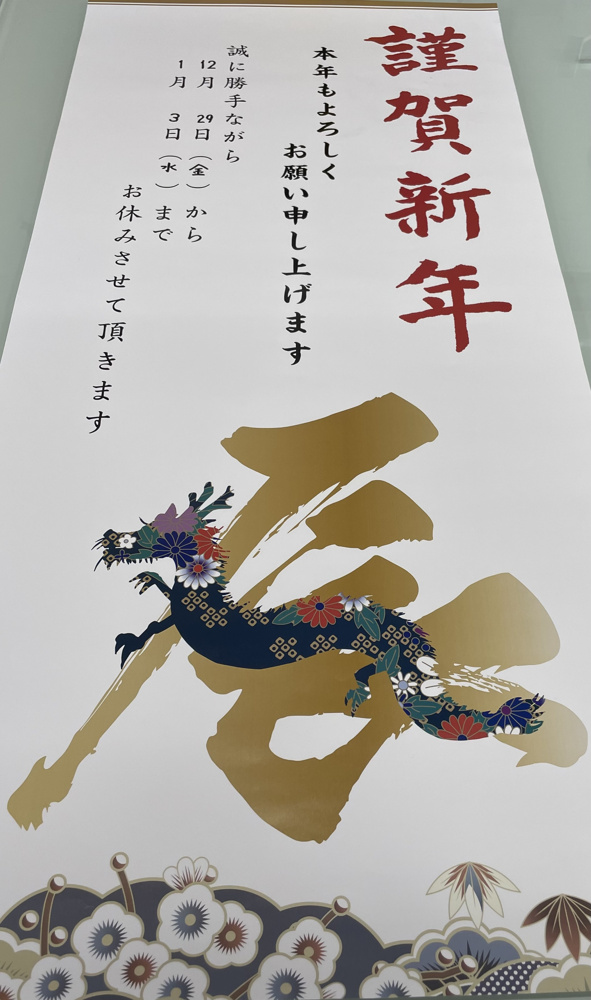 謹賀新年
本年もよろしく
お願い申し上げます
誠に勝手ながら
12月 29日（金）から
1月 3日（水）まで
お休みさせて頂きます
辰